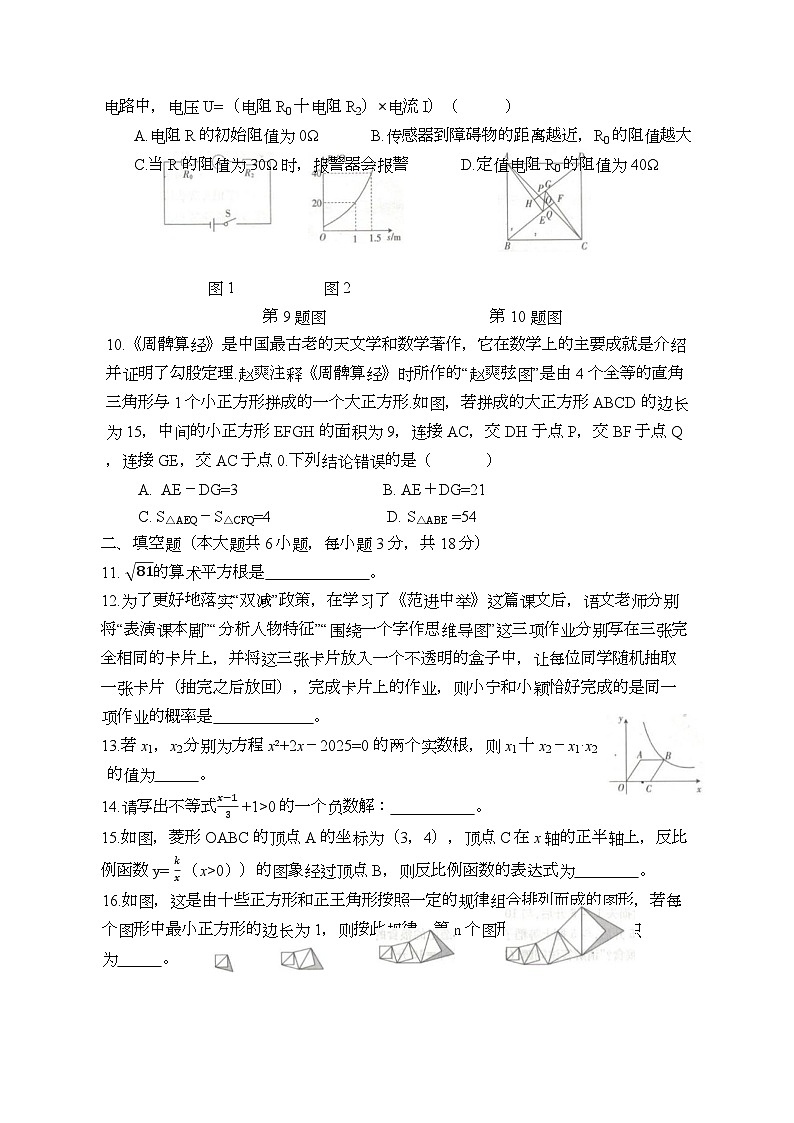 电路中，电压U=（电阻R₀十电阻R₂）×电流I）（ ）
A.电阻R的初始阻值为0Ω B.传感器到障碍物的距离越近，R₀的阻值越大
C.当R的阻值为30Ω时，报警器会报警 D.定值电阻R₀的阻值为40Ω
R₀ R₂ S
40 20 O 1 1.5 s/m
P G H O F E Q B C
图1 图2
第9题图 第10题图
10.《周髀算经》是中国最古老的天文学和数学著作，它在数学上的主要成就是介绍
并证明了勾股定理.赵爽注释《周髀算经》时所作的“赵爽弦图”是由4个全等的直角
三角形与1个小正方形拼成的一个大正方形.如图，若拼成的大正方形ABCD的边长
为15，中间的小正方形EFGH的面积为9，连接AC，交DH于点P，交BF于点Q
，连接GE，交AC于点0.下列结论错误的是（ ）
A. AE－DG=3 B. AE＋DG=21
C. S△AEQ－S△CFQ=4 D. S△ABE =54
二、填空题（本大题共6小题，每小题3分，共18分）
11. √81的算术平方根是 。
12.为了更好地落实“双减”政策，在学习了《范进中举》这篇课文后，语文老师分别
将“表演课本剧”“分析人物特征”“围绕一个字作思维导图”这三项作业分别写在三张完
全相同的卡片上，并将这三张卡片放入一个不透明的盒子中，让每位同学随机抽取
一张卡片（抽完之后放回），完成卡片上的作业，则小宁和小颖恰好完成的是同一
项作业的概率是 。
13.若x₁，x₂分别为方程x²+2x－2025=0的两个实数根，则x₁十x₂－x₁·x₂
的值为 。
y A B O C x
14.请写出不等式(x−1)/3 +1>0的一个负数解： 。
15.如图，菱形OABC的顶点A的坐标为（3，4），顶点C在x轴的正半轴上，反比
例函数y= k/x（x>0））的图象经过顶点B，则反比例函数的表达式为 。
16.如图，这是由十些正方形和正王角形按照一定的规律组合排列而成的图形，若每
个图形中最小正方形的边长为1，则按此规律，第n个图形
为 。